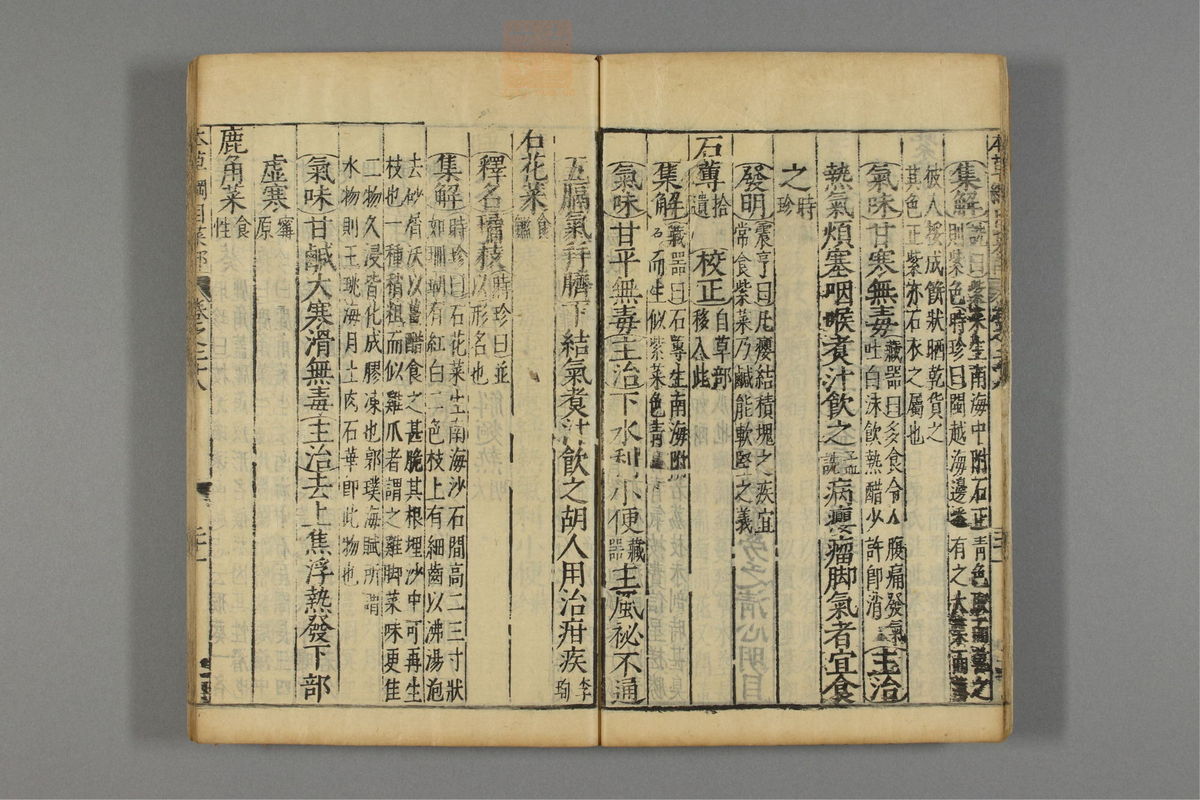 集解詵曰紫菜生南海中附石正青色取而乾之
則紫色時珍曰閩越海邊悉有之大葉而薄
彼人挼成餅狀晒乾貨之
其色正紫亦石衣之屬也
氣味甘寒無毒藏器曰多食令人腹痛發氣
吐白沫飲熱醋少許即消主治
熱氣煩塞咽喉煮汁飲之孟詵病癭瘤脚氣者宜食
之時珍
發明震亨曰凡癭結積塊之疾宜
常食紫菜乃鹹能軟堅之義
石蓴拾遺 校正自草部
移入此
集解藏器曰石蓴生南海附
石而生似紫菜色青
氣味甘平無毒主治下水利小便藏器主風祕不通
五膈氣并臍下結氣煮汁飲之胡人用治疳疾李珣
石花菜食鑑
釋名瓊枝時珍曰並
以形名也
集解時珍曰石花菜生南海沙石間高二三寸狀
如珊瑚有紅白二色枝上有細齒以沸湯泡
去砂屑沃以薑醋食之甚脆其根埋沙中可再生
枝也一種稍粗而似雞爪者謂之雞脚菜味更佳
二物久浸皆化成膠凍也郭璞海賦所謂
水物則玉珧海月土肉石華即此物也
氣味甘鹹大寒滑無毒主治去上焦浮熱發下部
虛寒寗原
鹿角菜食性
本草綱目菜部 卷之二十八